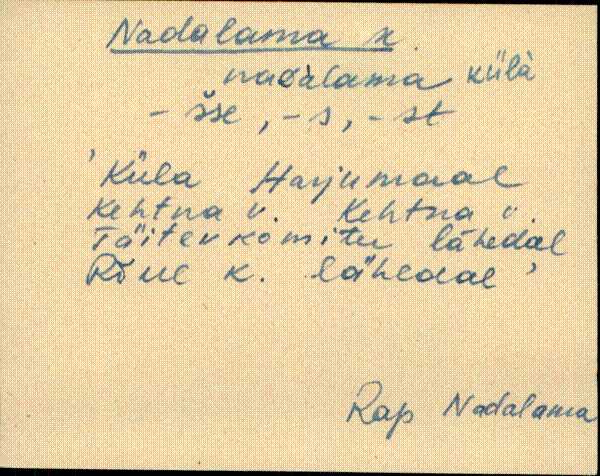 Nadalama k.
nadàlama külà
- sse, - s, - st
'Küla Harjumaal
Kehtna v. Kehtna v.
Täitevkomitee lähedal
k. lähedal'
Rap Nadalama